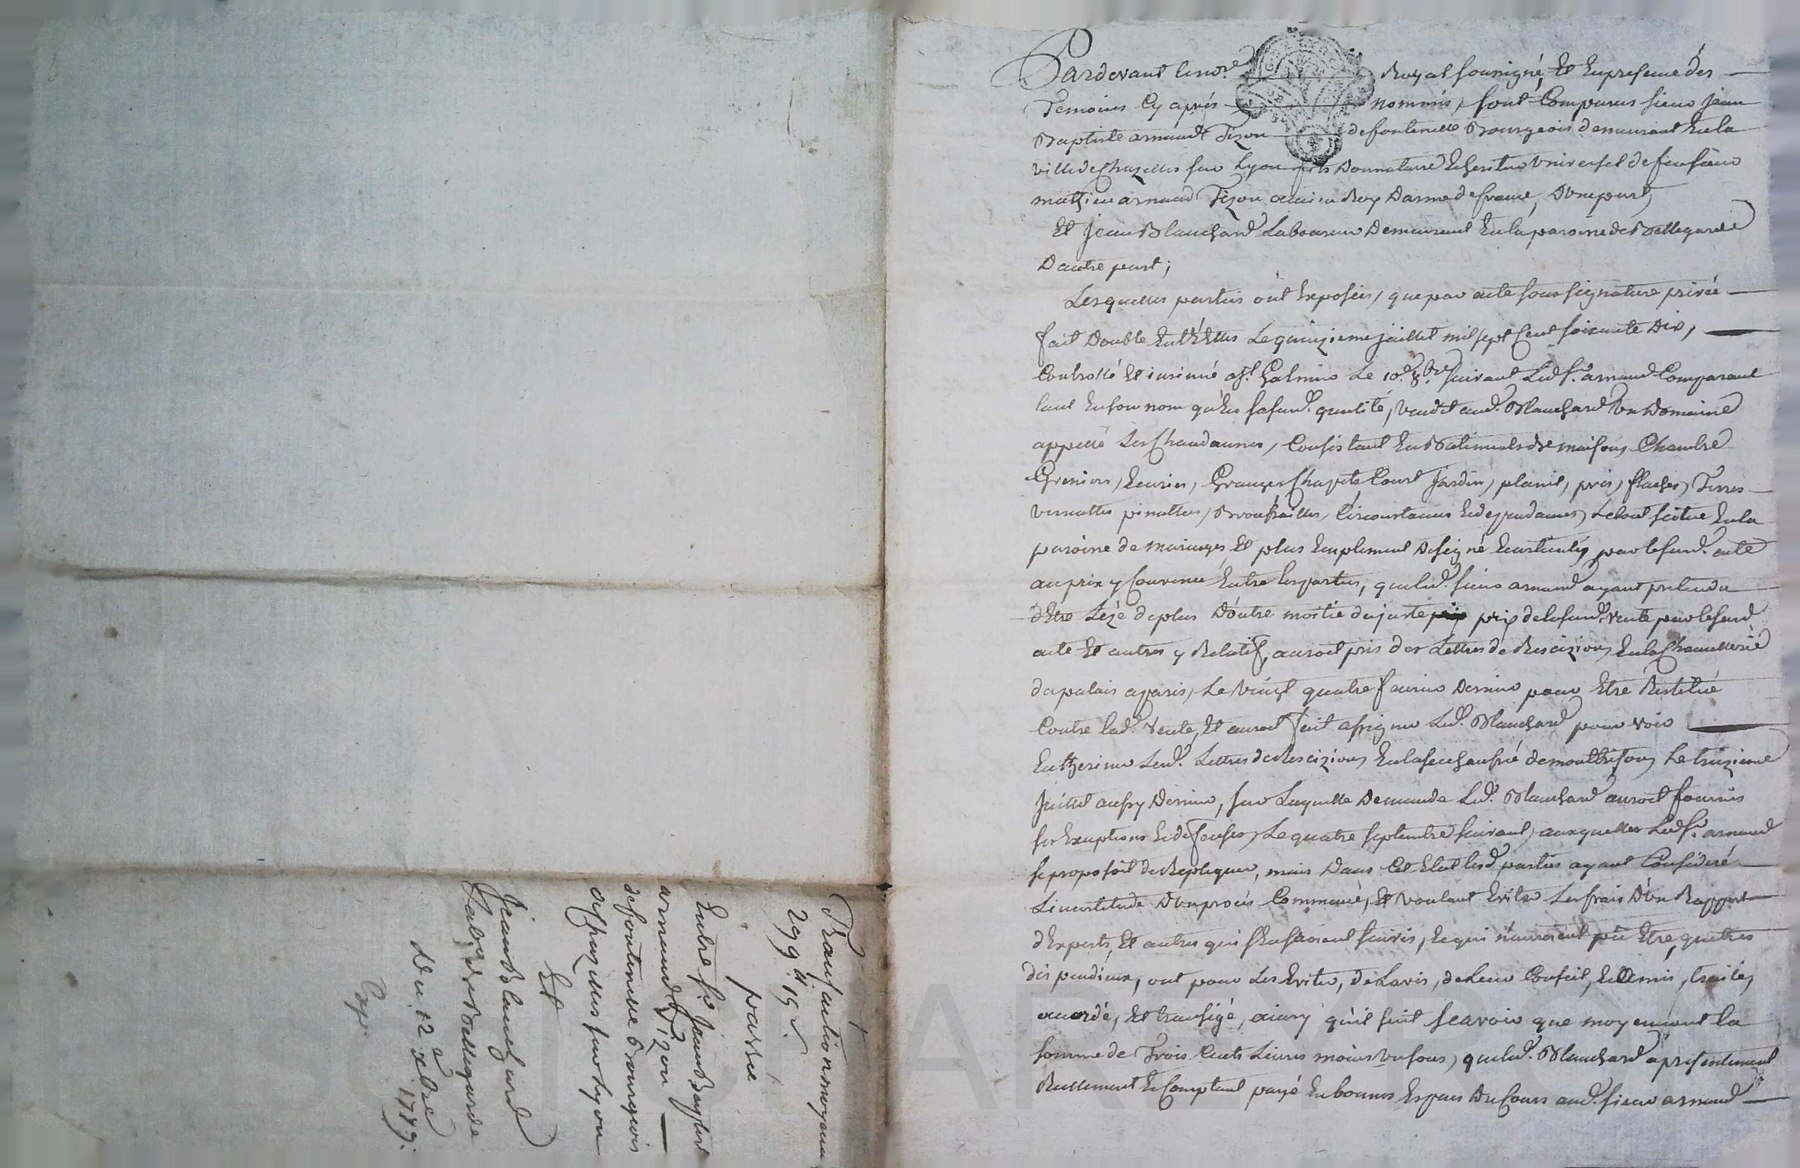 Transaction moyenant
299 ₶ 19 s.
passée
Entre sr. Jean Baptiste
arnaud Tizon
defontenelle Bourgeois
de chazelles sur Lyon
Et
Jean Blanchard
Labr. de Bellegarde
du 12 xbre
1789.
Exp.
Pardevant le nore. Royal soussigné, Et En presence des
Temoins Cy aprés nommés, sont Comparus sieur Jean
Baptiste arnaud Tizon defontenelle Bourgeois demeurant En la
ville de Chazelles sur Lyon fils Donnataire Et heritier Universel de feu sieur
mathieu arnaud Tizon ancien Roy Darme de france, D'une part,
Et Jean Blanchard Laboureur Demeurant En la paroisse de Bellegarde
D'autre part;
Lesquelles parties ont Exposées, que par acte sous signature privée
fait Double Entr'Elles Le quinzieme juillet mil sept Cent soixante Dix,
Controllé Et insinué ast. Galmier Le 10e. 8bre. suivant Led. sr. arnaud Comparant
tant En son nom qu'En sa susd. qualité, vendit aud. Blanchard Un Domaine
appellé Les Chaudannes, Consistant En Batiments de maisons Chambre
Greniers, Ecuries, Granges Chapits Court Jardin, plant, prés, flaches, Terres
vernattes pinattes, Broussailles, Circonstances Et dependances, Le tout scitué En la
paroisse de maringes Et plus Emplement Designé Et articulés par le susd. acte
au prix y Convenu Entre les parties, que led. sieur arnaud ayant pretendu
d'Etre Lezé de plus D'outre moitié du juste prix de la susd. vente par le susd.
acte Et autres y Relatif, auroit pris des Lettres de Rescizions En la Chancellerie
du palais a paris, Le vingt quatre fevrier Dernier pour Etre Restitué
Contre lad. vente, Et auroit fait assigner Led. Blanchard pour voir
Entheriner Lesd. Lettres de Rescizions En la senechaussée de montbrison, Le treizieme
Juillet aussy Dernier, sur Laquelle Demande Led. Blanchard auroit fournis
ses Exceptions Et defenses, Le quatre septembre suivant, auxquelles Led. sr. arnaud
se proposoit de Repliquer, mais Dans Cet Etat lesd. parties ayant Consideré
L'incertitude D'un procés Commencé, Et voulant Eviter Les frais D'un Rapport
d'Experts, Et autres qui s'En seroient suivis, Et qui n'auroient pû Etre que tres
dispendieux, ont pour Les Eviter, de L'avis, de Leur Conseil, Et amis, traités,
accordé, Et transigé, ainsy qu'il suit sçavoir que moyennant la
somme de Trois Cents Livres moins vn sous, que led. Blanchard a présentement
Reellement Et Comptant payé En bonnes Especes Du Cours aud. sieur arnaud